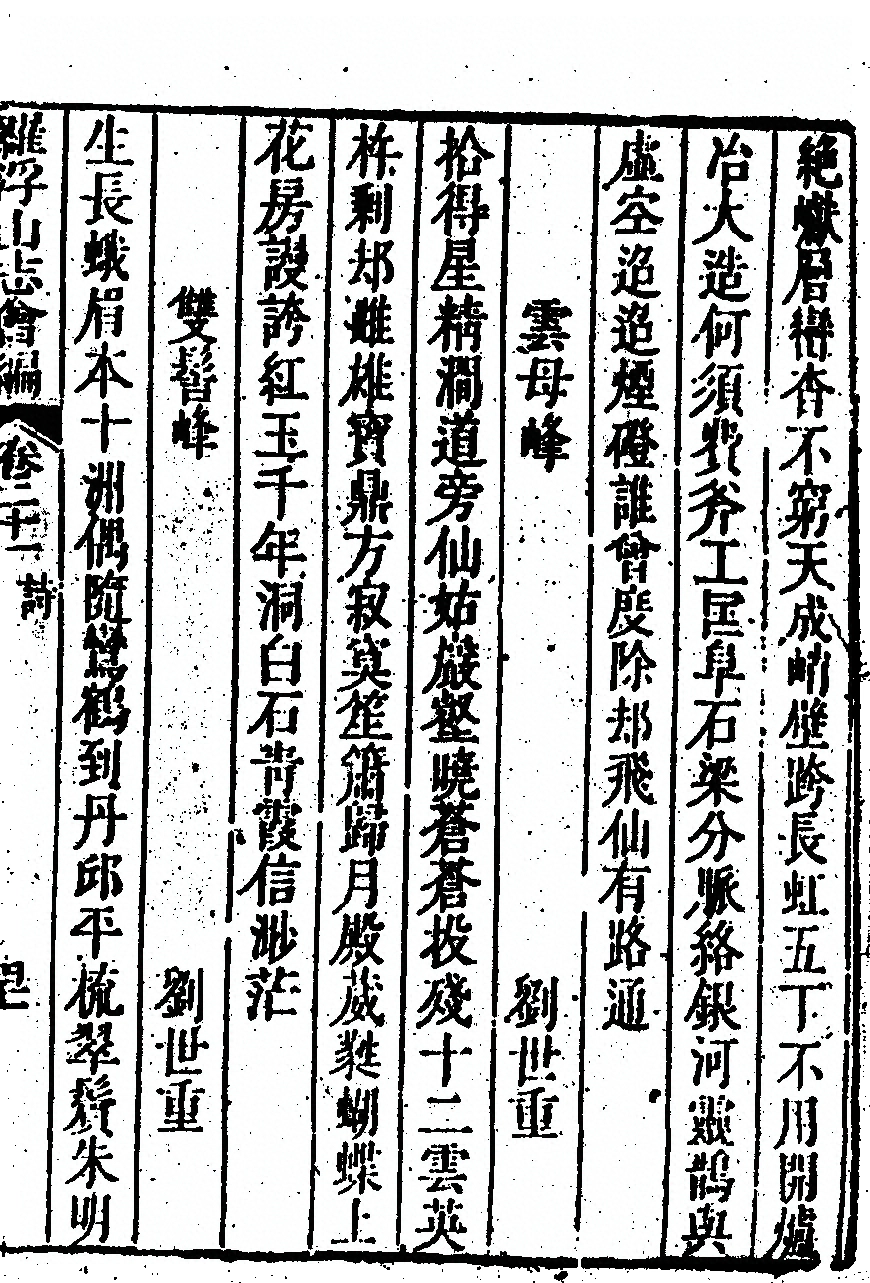 絶巘層巒杳不窮天成峭壁跨長虹五丁不用開爐
冶大造何須費斧工匡阜石梁分脈絡銀河靈鵲與
虛空迢迢煙磴誰曾度除却飛仙有路通
雲母峰　劉世重
拾得星精澗道旁仙姑巖壑曉蒼蒼投殘十二雲英
杵剩却雌雄寶鼎方寂寞笙簫歸月殿葳蕤蝴蝶上
花房謾誇紅玉千年洞白石青霞信渺茫
雙髻峰　劉世重
生長蛾眉本十洲偶隨鸞鶴到丹邱平梳翠鬟朱明
羅浮山志會編　卷二十一　詩